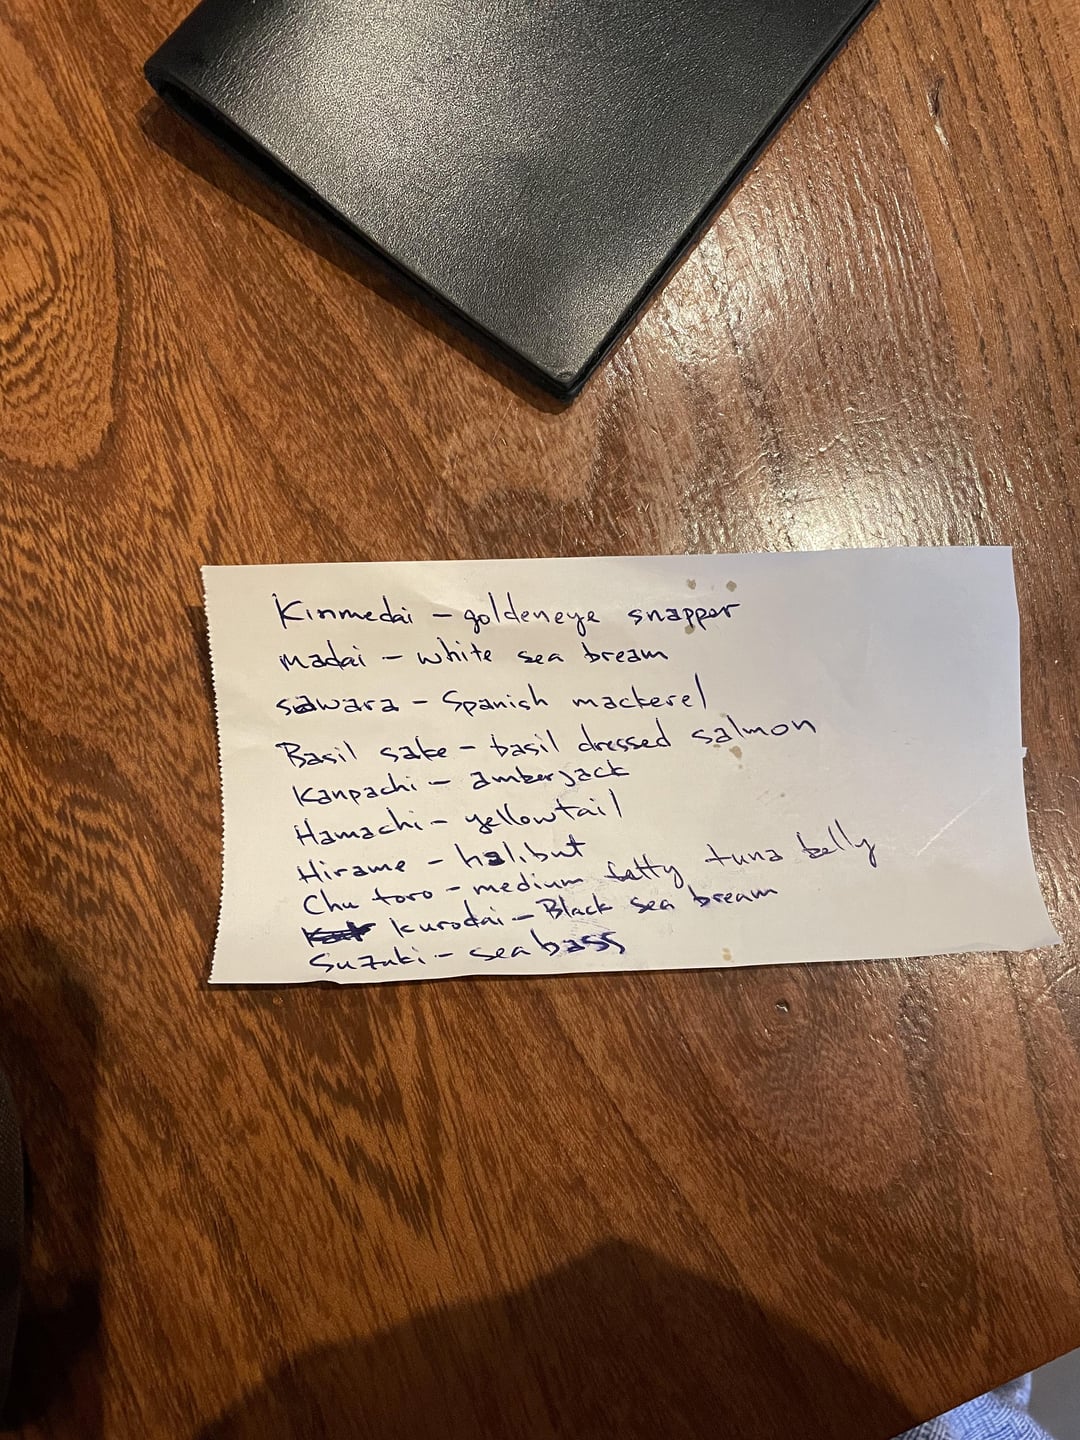 Kinmedai - goldeneye snapper
Madai - white sea bream
sawara - Spanish mackerel
Basil sake - basil dressed salmon
Kanpachi - amberjack
Hamachi - yellowtail
Hirame - halibut
Chu toro - medium fatty tuna belly
Kurodai - Black sea bream
Suzuki - sea bass